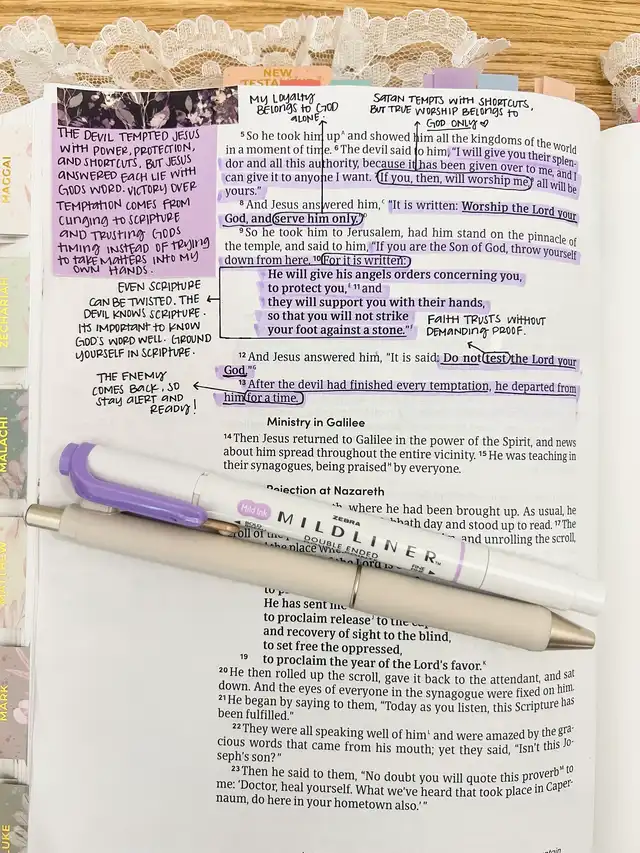 NEW
TESTAMENT
HAGGAI
ZECHARIAH
MALACHI
MATTHEW
MARK
LUKE
MY LOYALTY
BELONGS TO GOD
ALONE.
SATAN TEMPTS WITH SHORTCUTS,
BUT TRUE WORSHIP BELONGS TO
GOD ONLY ♡
THE DEVIL TEMPTED JESUS
WITH POWER, PROTECTION,
AND SHORTCUTS, BUT JESUS
ANSWERED EACH LIE WITH
GODS WORD. VICTORY OVER
TEMPTATION COMES FROM
CLINGING TO SCRIPTURE
AND TRUSTING GODS
TIMING INSTEAD OF TRYING
TO TAKE MATTERS INTO MY
OWN HANDS.
EVEN SCRIPTURE
CAN BE TWISTED. THE
DEVIL KNOWS SCRIPTURE.
ITS IMPORTANT TO KNOW
GOD'S WORD WELL. GROUND
YOURSELF IN SCRIPTURE.
THE ENEMY
COMES BACK, SO
STAY ALERT AND
READY!
5 So he took him up^A and showed him all the kingdoms of the world
in a moment of time. 6 The devil said to him, "I will give you their splen-
dor and all this authority, because it has been given over to me, and I
can give it to anyone I want. 7 If you, then, will worship me, all will be
yours."
8 And Jesus answered him,^C "It is written: Worship the Lord your
God, and serve him only."^D
9 So he took him to Jerusalem, had him stand on the pinnacle of
the temple, and said to him, "If you are the Son of God, throw yourself
down from here. 10 For it is written:
He will give his angels orders concerning you,
to protect you,^E 11 and
they will support you with their hands,
so that you will not strike
your foot against a stone."^F
FAITH TRUSTS WITHOUT
DEMANDING PROOF.
12 And Jesus answered him, "It is said: Do not test the Lord your
God."^G
13 After the devil had finished every temptation, he departed from
him for a time.
Ministry in Galilee
14 Then Jesus returned to Galilee in the power of the Spirit, and news
about him spread throughout the entire vicinity. 15 He was teaching in
their synagogues, being praised^H by everyone.
Rejection at Nazareth
where he had been brought up. As usual, he
day and stood up to read. 17 The
and unrolling the scroll,
the place
the Lord is
Mild Ink
ZEBRA
MILDLINER™
DOUBLE ENDED
FINE
to
He has sent me
to proclaim release^J to the
and recovery of sight to the blind,
to set free the oppressed,
19 to proclaim the year of the Lord's favor.^K
20 He then rolled up the scroll, gave it back to the attendant, and sat
down. And the eyes of everyone in the synagogue were fixed on him.
21 He began by saying to them, "Today as you listen, this Scripture has
been fulfilled."
22 They were all speaking well of him^L and were amazed by the gra-
cious words that came from his mouth; yet they said, "Isn't this Jo-
seph's son?"
23 Then he said to them, "No doubt you will quote this proverb^M to
me: 'Doctor, heal yourself. What we've heard that took place in Caper-
naum, do here in your hometown also.'"